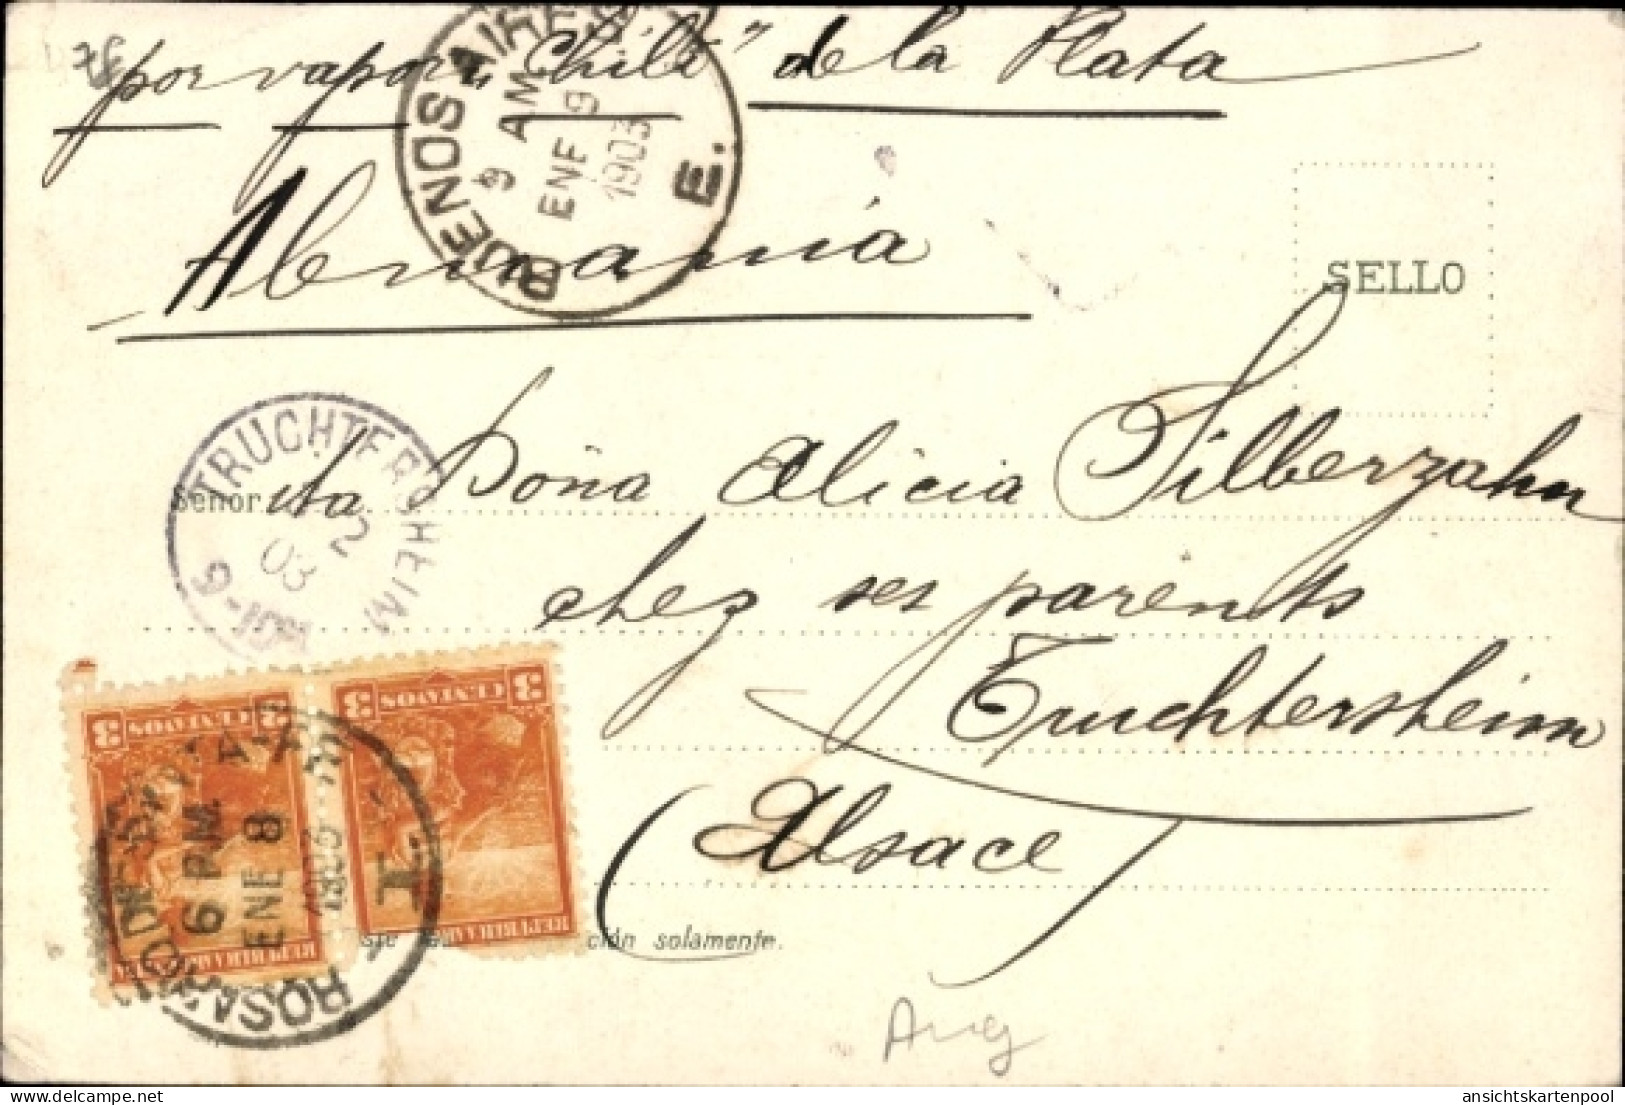 por vapor "Chili" de la Plata
BUENOS AIRES
9 AM
ENE 9
1903
E.
Alemania
SELLO
TRUCHTERSHEIM
2
03
Señorita Doña Alicia Silberzahn
chez ses parents
Truchtersheim
(Alsace)
3 CENTAVOS 3
3 CENTAVOS 3
6 PM
ENE 8
1903
ROSARIO
ción solamente.
Arg
ansichtskartenpool